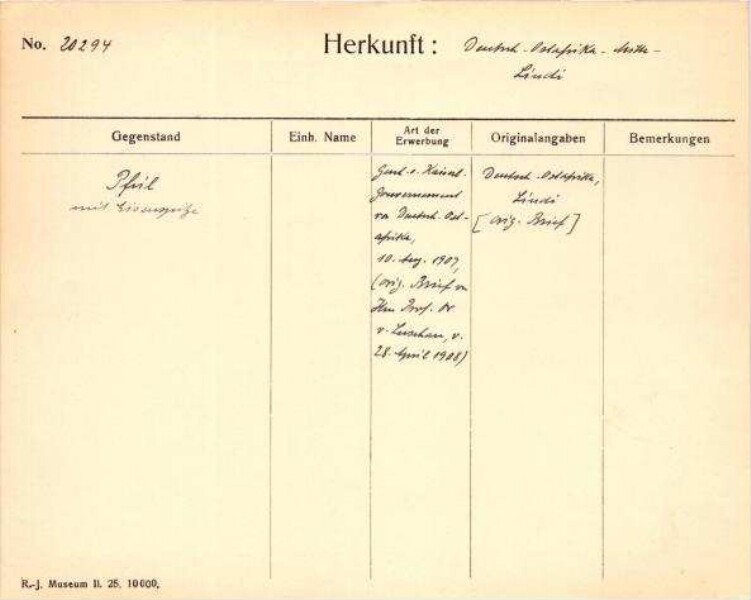 No. 20294
Herkunft: Deutsch-Ostafrika-
Lindi
Gegenstand
Einh. Name
Art der
Erwerbung
Originalangaben
Bemerkungen
Pfeil
mit Eisenspitze
Gesch. v. Kaiserl.
Gouvernement
von Deutsch-Ost-
afrika,
10. 1907,
(orig. Brief von
Hrn Prof. Dr
v. Luschan, v.
28. April 1908)
Deutsch-Ostafrika,
Lindi
[orig. Brief]
R.-J. Museum II. 25. 10000.